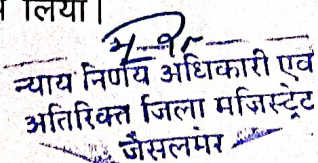 लिया।
न्याय निर्णय अधिकारी एवं
अतिरिक्त जिला मजिस्ट्रेट
जैसलमेर